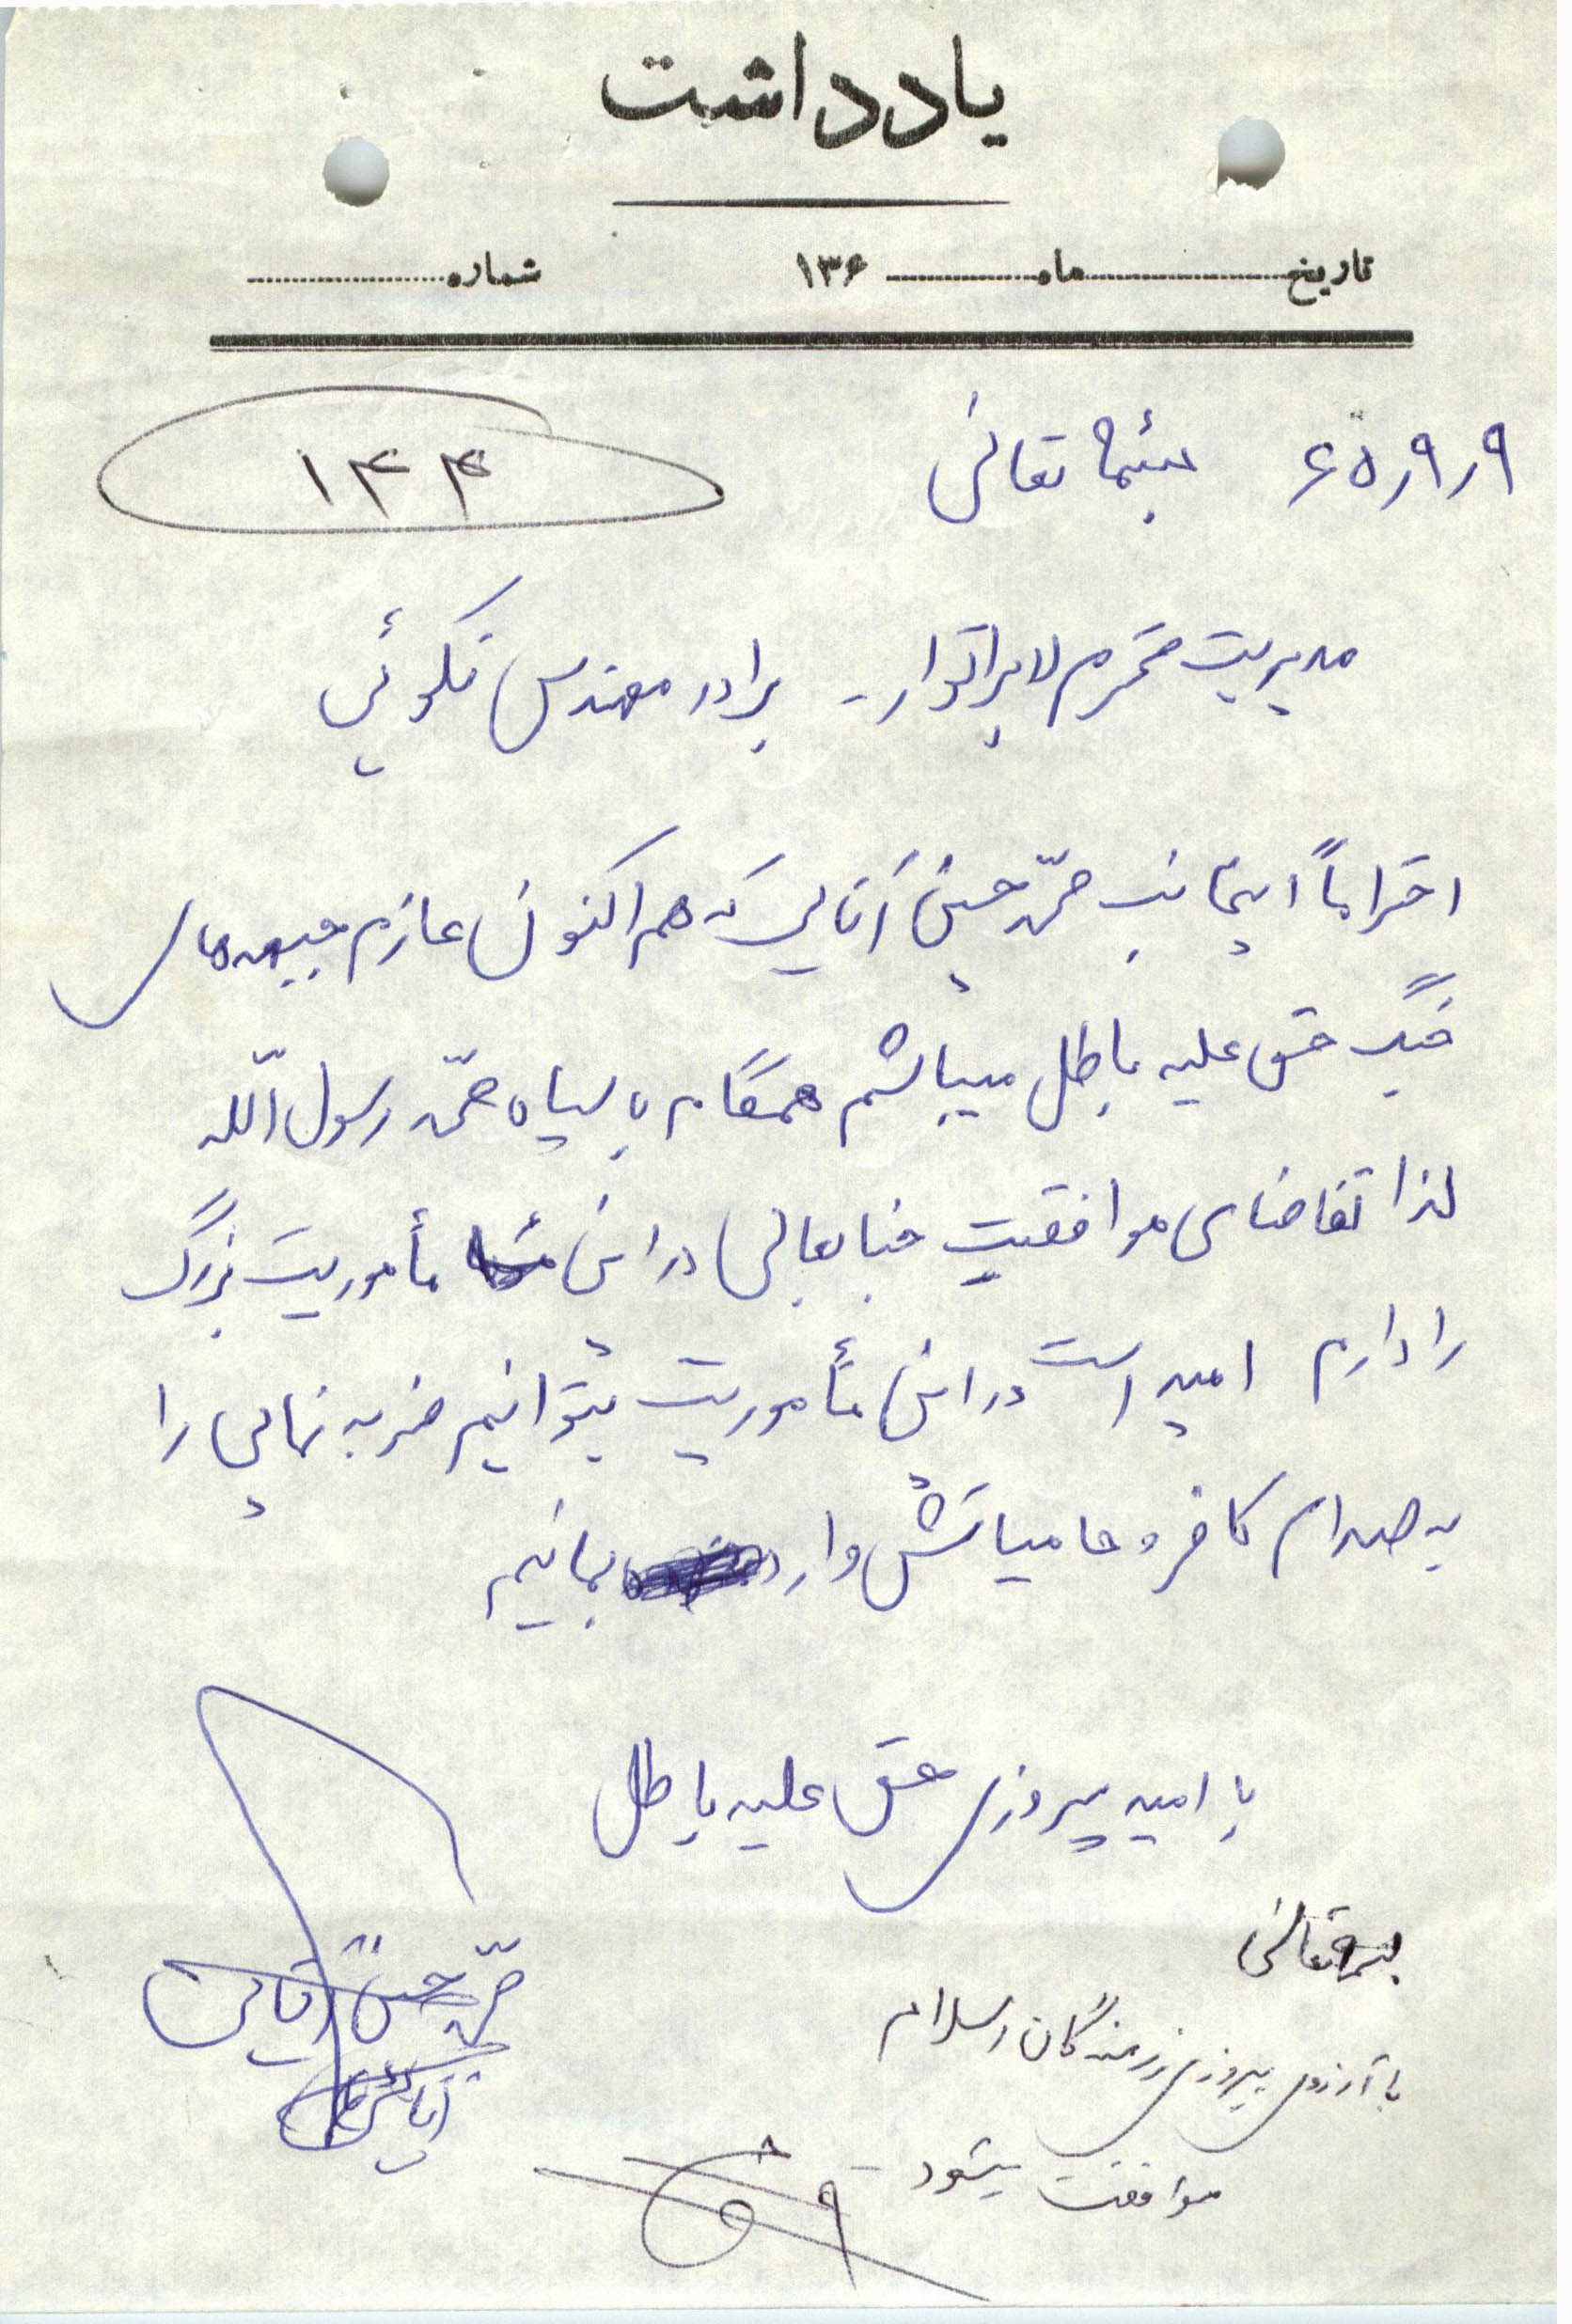 یادداشت
تاریخ ........ ماه ........ ۱۳۶ شماره ........
۶۵٫۹٫۹ بسمه تعالی
۱۴۴
مدیریت محترم لابراتوار - برادر مهندس نکوئی
احتراماً اینجانب محمد حسین آقایی که هم اکنون عازم جبهه های
جنگ حق علیه باطل میباشم همگام با سپاه محمد رسول الله
لذا تقاضای موافقیت جنابعالی در این مأموریت بزرگ
را دارم امید است در این مأموریت بتوانیم ضربه نهایی را
به صدام کافر و حامیانش وارد بمانیم
با امید پیروزی حق علیه باطل
محمد حسین آقایی
بسمه تعالی
با آرزوی پیروزی رزمندگان اسلام
موافقت میشود